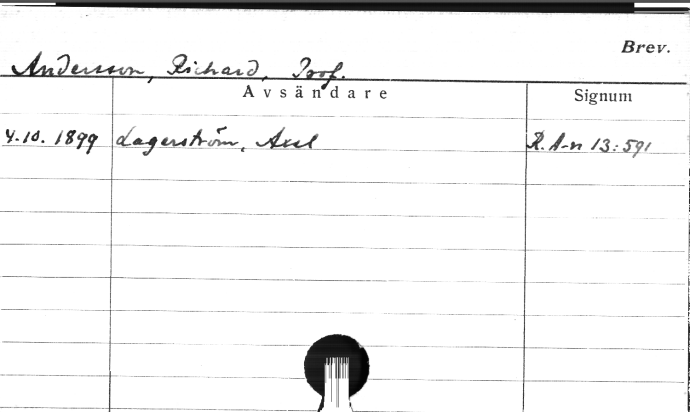 Brev.
Andersson, Richard, Prof.
Avsändare Signum
4.10.1899 Lagerström, Axel R.A-n 13:591